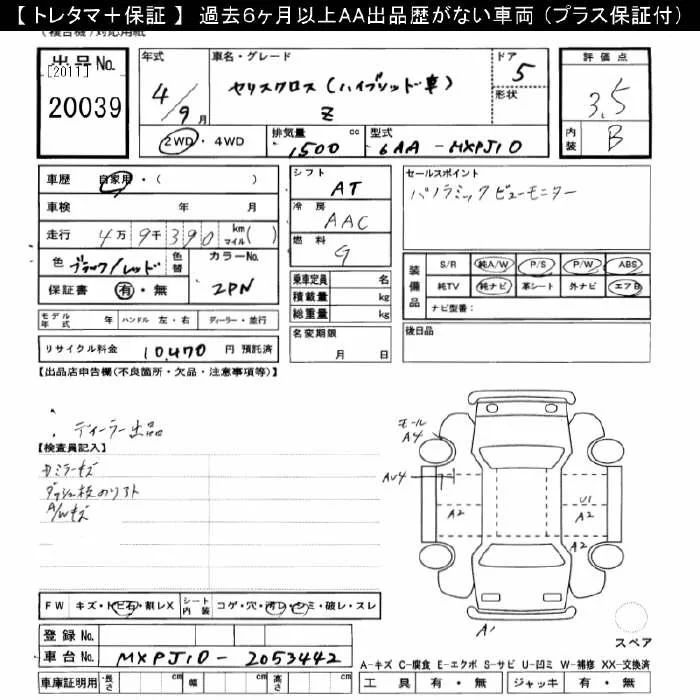 【 トレタマ＋保証 】 過去6ヶ月以上AA出品歴がない車両（プラス保証付）
出品No.
[2011]
20039
年式
4／9月
車名・グレード
ヤリスクロス（ハイブリッド車）
Z
ドア
5
形状
評価点
3.5
内装
B
2WD ・ 4WD
排気量
1500 cc
型式
6AA - MXPJ10
車歴 自家用・( )
車検 年 月
走行 4万9千390 km マイル( )
色 ブラック／レッド 色替
カラーNo.
2PN
保証書 有・無
シフト
AT
冷房
AAC
燃料
G
セールスポイント
パノラミックビューモニター
装備品
S/R 純A/W P/S P/W ABS
純TV 純ナビ 革シート 外ナビ エアB
ナビ型番：
乗車定員 名
積載量 kg
総重量 kg
モデル年式 年 ハンドル 左・右 ディーラー・並行
名変期限
月 日
後日品
リサイクル料金 10,470 円 預託済
【出品店申告欄(不良箇所・欠品・注意事項等)】
ディーラー出品
【検査員記入】
ミラーキズ
A/Wキズ
モール
A4
AU4
A2
U1
A2
A2
A1
FW キズ・トビ石・割レX
シート内装 コゲ・穴・汚レ・シミ・破レ・スレ
スペア
登録No.
車台No. MXPJ10 - 2053442
車庫証明用 長さ cm 幅 cm 高さ cm
A-キズ C-腐食 E-エクボ S-サビ U-凹ミ W-補修 XX-交換済
工具 有・無 ジャッキ 有・無